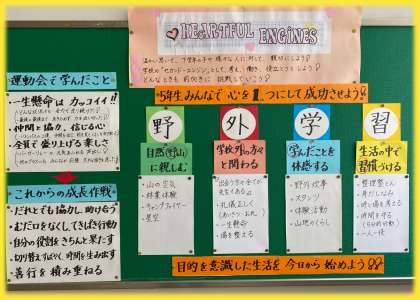 HEARTFUL ENGINES
5年生みんなで心を1つにして成功させよう
運動会で学んだこと
一生懸命はカッコイイ!!
仲間と協力、信じる心
全員で盛り上げる楽しさ
これからの成長作戦
・だれとでも協力し、助け合う
・むだ口をなくしてきぱき行動
・自分の役割をきちんと果たす
・切り替えすばやく、時間を生み出す
・善行を積み重ねる
野
自然(野山)
に親しむ
・山の空気
・林業体験
・キャンプファイヤー
・星空
外
学校外の方々
と関わる
・礼儀正しく
(あいさつ、お礼)
・一生懸命
・場を整える
学
学んだことを
体感する
・野外炊事
・スタンツ
・体験活動
・山地のくらし
習
生活の中で
習慣づける
・整理整とん
・身だしなみ
・時間を守る
(5分前行動)
・一人一役
目的を意識した生活を今日から始めよう!!